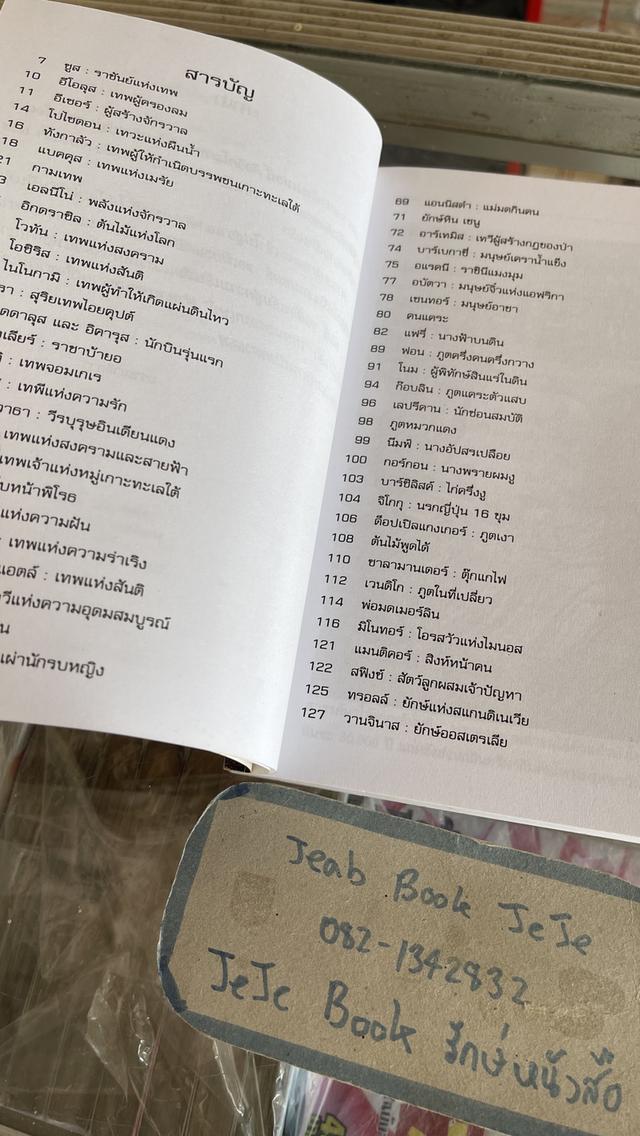 สารบัญ
7 ซูส : ราชันย์แห่งเทพ
10 อีโอลุส : เทพผู้ครองลม
11 อีเซอร์ : ผู้สร้างจักรวาล
14 โปไซดอน : เทวะแห่งผืนน้ำ
16 ทังกาลัว : เทพผู้ให้กำเนิดบรรพชนเกาะทะเลใต้
18 แบคคุส : เทพแห่งเมรัย
21 กามเทพ
3 เอลนีโน่ : พลังแห่งจักรวาล
อิกดราซิล : ต้นไม้แห่งโลก
โวทัน : เทพแห่งสงคราม
โอซิริส : เทพแห่งสันติ
ไนโนกามิ : เทพผู้ทำให้เกิดแผ่นดินไหว
รา : สุริยเทพไอยคุปต์
ดดาลุส และ อิคารุส : นักบินรุ่นแรก
เลียร์ : ราชาบ้ายอ
: เทพจอมเกเร
: เทพีแห่งความรัก
วาธา : วีรบุรุษอินเดียนแดง
เทพแห่งสงครามและสายฟ้า
เทพเจ้าแห่งหมู่เกาะทะเลใต้
บหน้าพิโรธ
แห่งความฝัน
: เทพแห่งความร่าเริง
แอตล์ : เทพแห่งสันติ
วีแห่งความอุดมสมบูรณ์
น
เผ่านักรบหญิง
69 แอนนิสดำ : แม่มดกินคน
71 ยักษ์หิน เซนู
72 อาร์เทมิส : เทวีผู้สร้างกฎของป่า
74 บาร์เบกาซี่ : มนุษย์เคราน้ำแข็ง
75 อแรคนี : ราชินีแมงมุม
77 อบัตวา : มนุษย์จิ๋วแห่งแอฟริกา
78 เซนทอร์ : มนุษย์อาชา
80 คนแคระ
82 แฟรี่ : นางฟ้าบนดิน
89 ฟอน : ภูตครึ่งคนครึ่งกวาง
91 โนม : ผู้พิทักษ์สินแร่ในดิน
94 ก๊อบลิน : ภูตแคระตัวแสบ
96 เลปรีคาน : นักซ่อนสมบัติ
98 ภูตหมวกแดง
99 นิมฟ์ : นางอัปสรเปลือย
100 กอร์กอน : นางพรายผมงู
103 บาร์ซิลิสค์ : ไก่ครึ่งงู
104 จิโกกุ : นรกญี่ปุ่น 16 ขุม
106 ด็อปเปิลแกงเกอร์ : ภูตเงา
108 ต้นไม้พูดได้
110 ซาลามานเดอร์ : ตุ๊กแกไฟ
112 เวนดิโก : ภูตในที่เปลี่ยว
114 พ่อมดเมอร์ลิน
116 มิโนทอร์ : โอรสวัวแห่งไมนอส
121 แมนติคอร์ : สิงห์หน้าคน
122 สฟิงซ์ : สัตว์ลูกผสมเจ้าปัญหา
125 ทรอลล์ : ยักษ์แห่งสแกนดิเนเวีย
127 วานจินาส : ยักษ์ออสเตรเลีย
Jeab Book JeJe
082-1342832
JeJe Book รักษ์หนังสือ